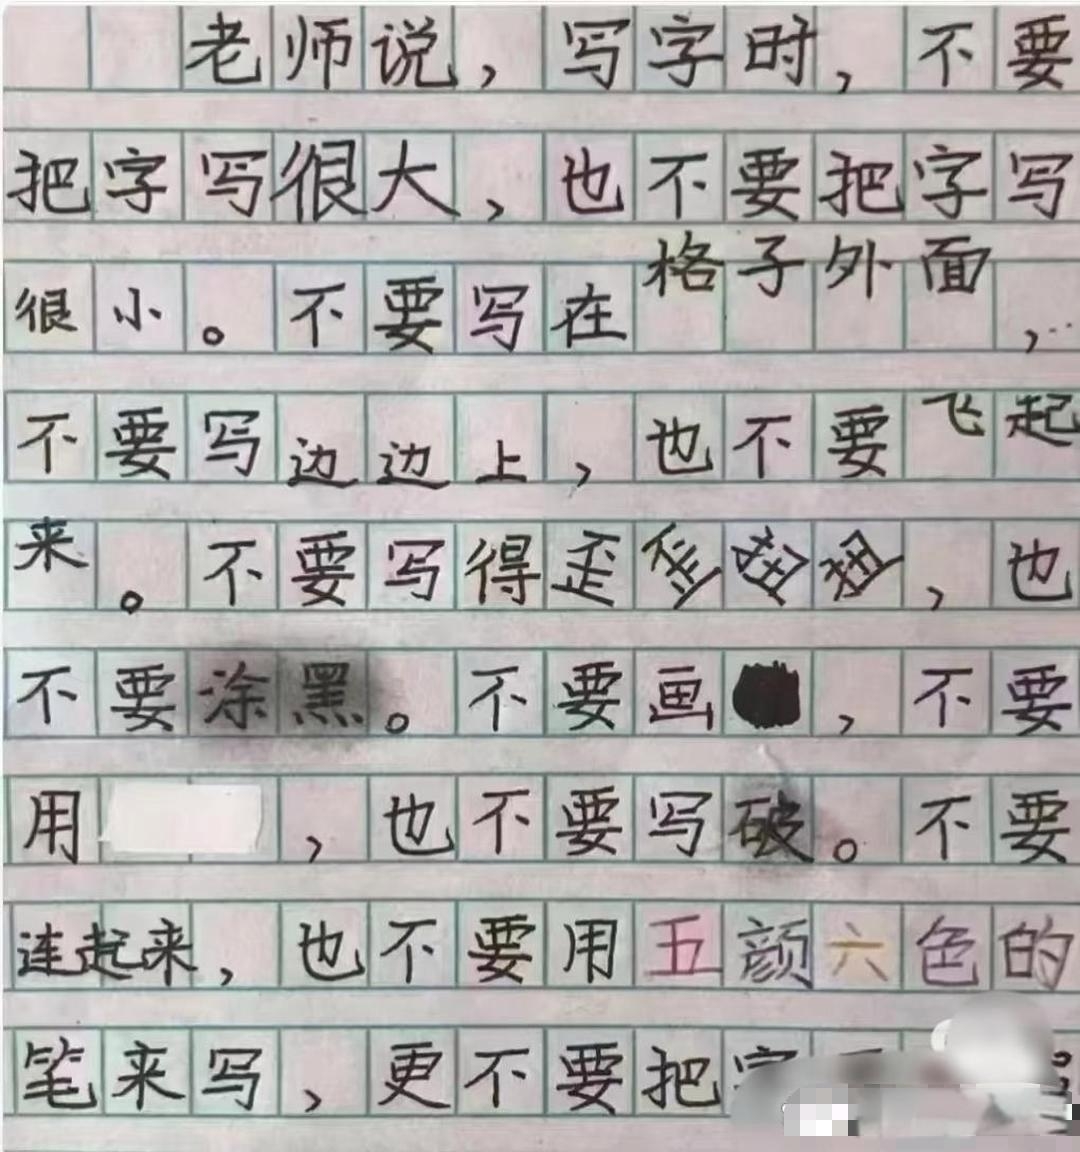 老师说，写字时，不要
把字写很大，也不要把字写
很小。不要写在格子外面，
不要写边边上，也不要飞起
来。不要写得歪歪扭扭，也
不要涂黑。不要画，不要
用，也不要写破。不要
连起来，也不要用五颜六色的
笔来写，更不要把字